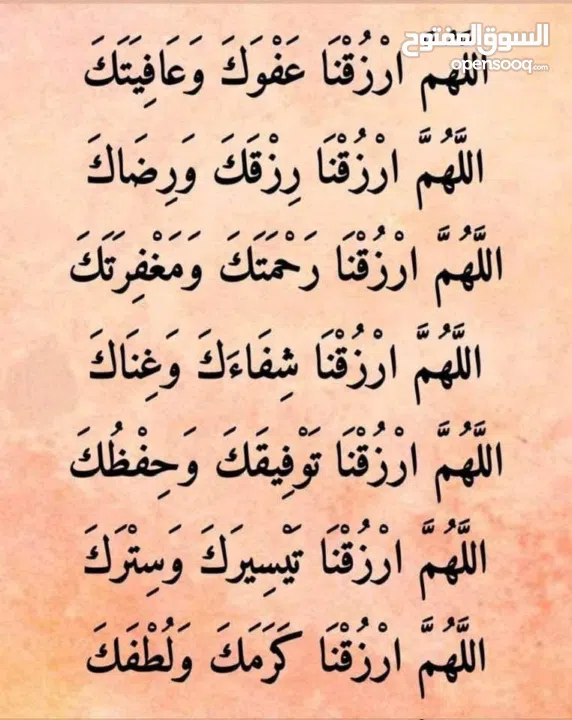 السوق المفتوح
opensooq.com
اللَّهُمَّ ارْزُقْنَا عَفْوَكَ وَعَافِيَتَكَ
اللَّهُمَّ ارْزُقْنَا رِزْقَكَ وَرِضَاكَ
اللَّهُمَّ ارْزُقْنَا رَحْمَتَكَ وَمَغْفِرَتَكَ
اللَّهُمَّ ارْزُقْنَا شِفَاءَكَ وَغِنَاكَ
اللَّهُمَّ ارْزُقْنَا تَوْفِيقَكَ وَحِفْظُكَ
اللَّهُمَّ ارْزُقْنَا تَيْسِيرَكَ وَسِتْرَكَ
اللَّهُمَّ ارْزُقْنَا كَرَمَكَ وَلُطْفَكَ